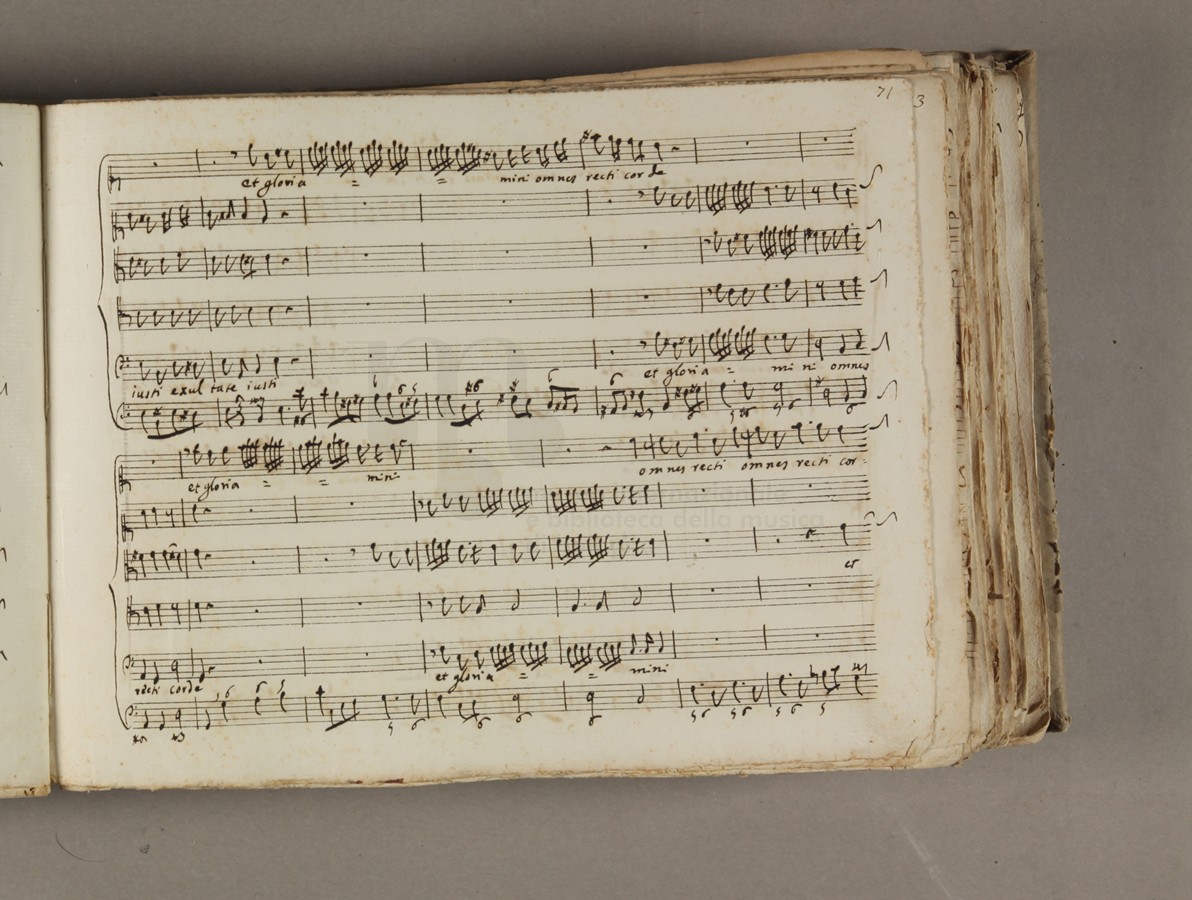 71
3
et gloria = = mini omnes recti corde
et gloria = mini omnes
iusti exultate iusti
et gloria = = mini
omnes recti omnes recti cor-
et
et gloria = = mini
recti corde
e biblioteca della musica